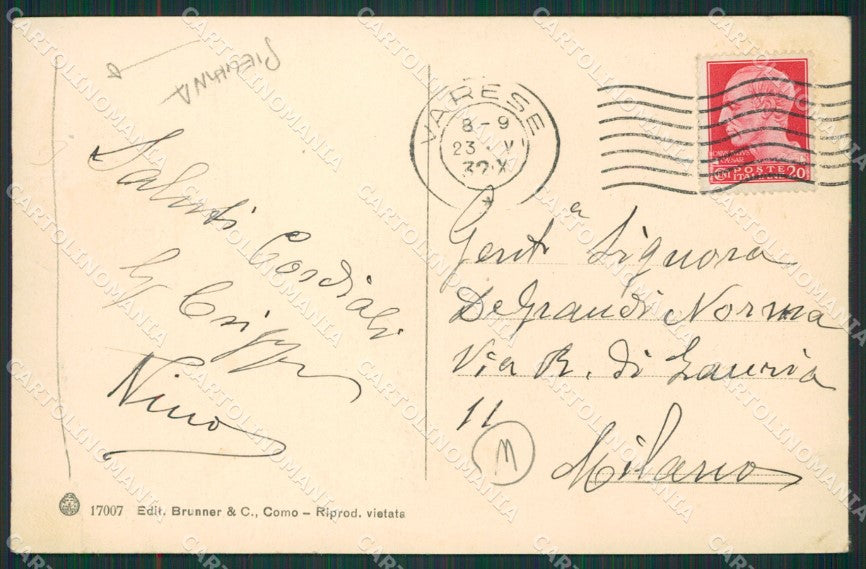 PIEVIANA
Saluti Cordiali
G Crippa
Nino
17007 Edit. Brunner & C., Como – Riprod. vietata
VARESE
8-9
23 . VI
32 X
POSTE
ITALIANE
20
Gent.a Signora
DeGrandi Norma
Via R. di Lauria
11
M
Milano
CARTOLINOMANIA